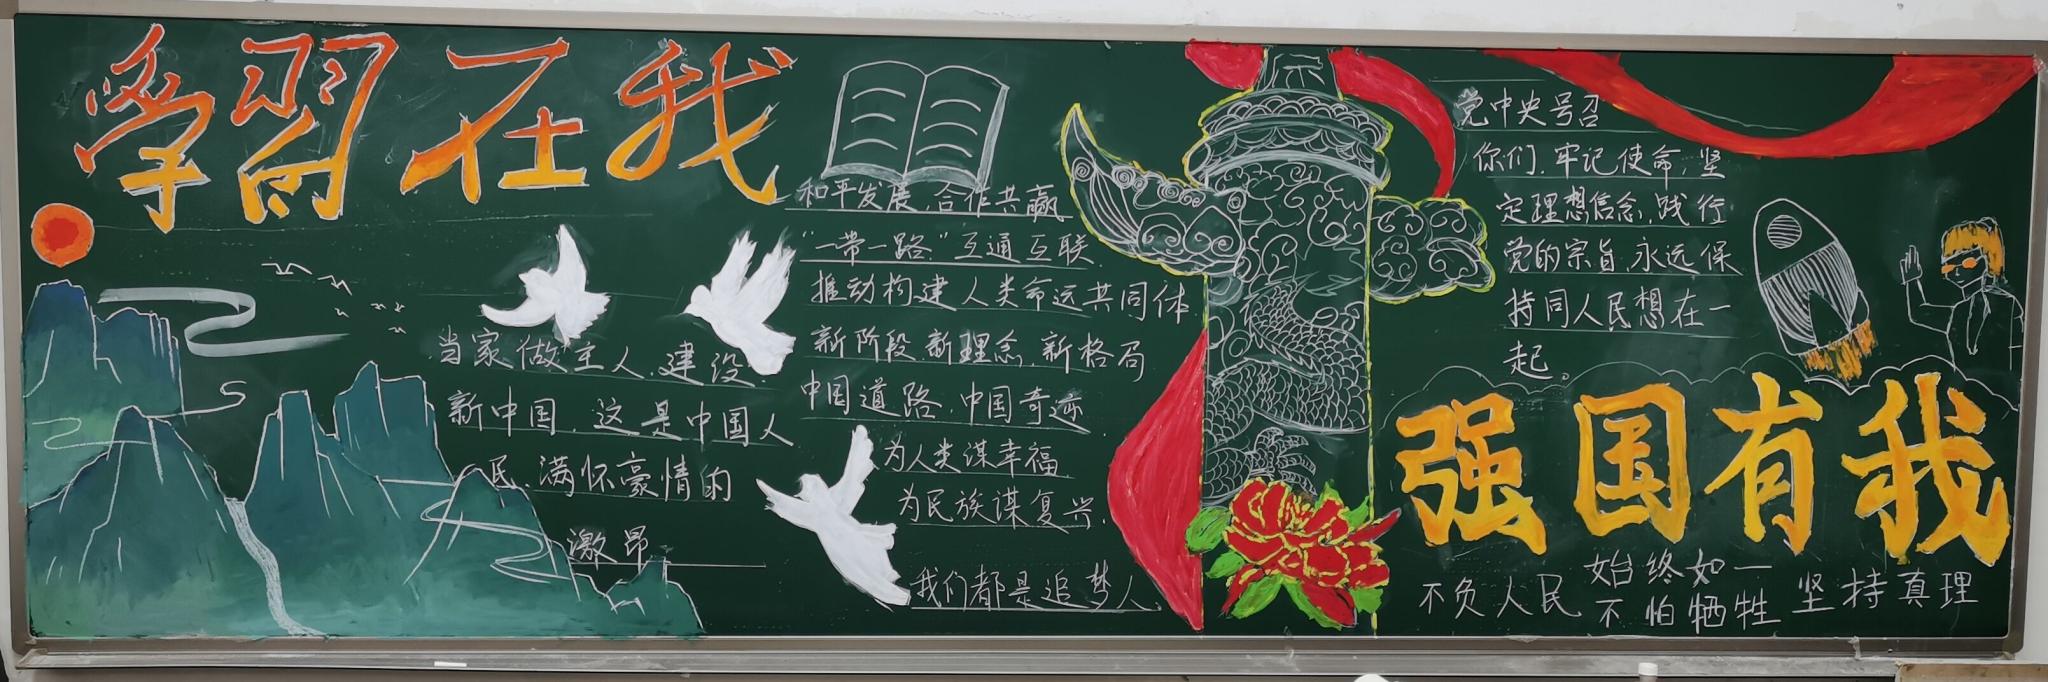 学習在我
当家做主人.建设.
新中国.这是中国人
民.满怀豪情的
激昂
和平发展.合作共赢
"一带一路."互通互联.
推动构建人类命运共同体
新阶段.新理念.新格局
中国道路.中国奇迹.
为人类谋幸福
为民族谋复兴.
我们都是追梦人.
党中央号召
你们.牢记使命.坚
定理想信念.践行
党的宗旨.永远保
持同人民想在一
起。
强国有我
不负人民
始终如一
不怕牺牲
坚持真理